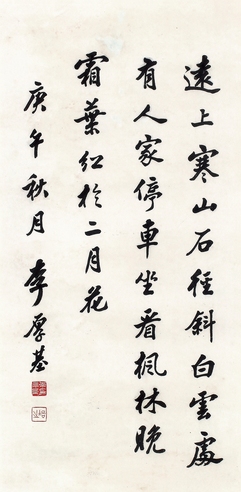 遠上寒山石徑斜白雲處
有人家停車坐看楓林晚
霜葉紅於二月花
庚午秋月 李厚基